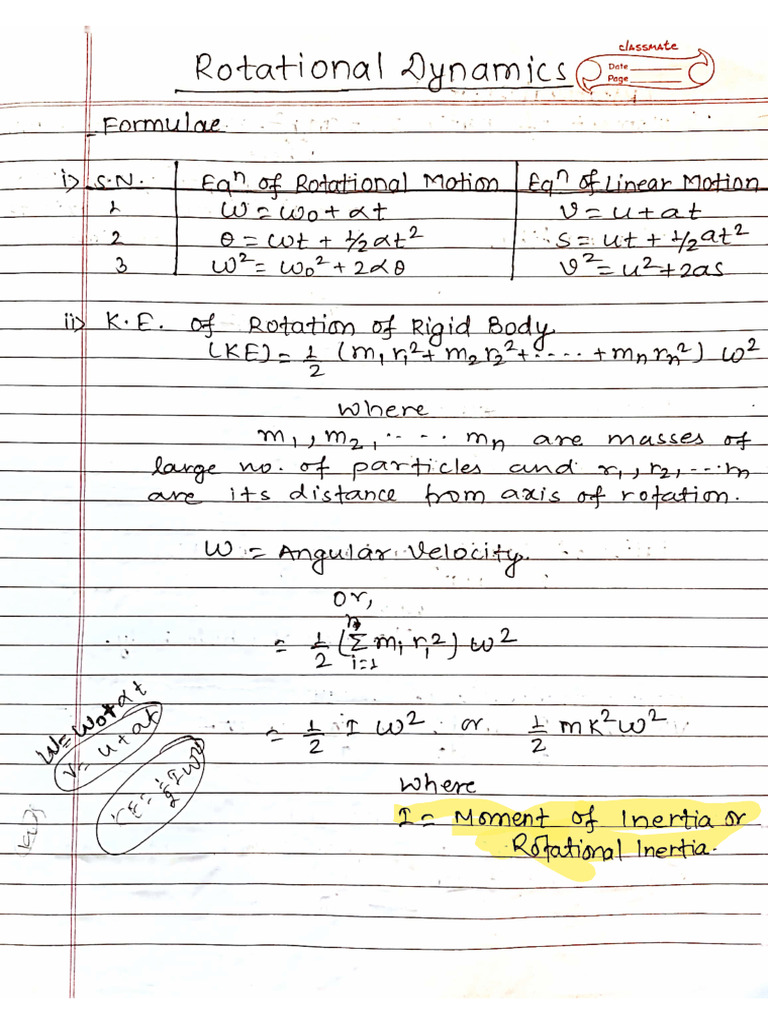 classmate
Date
Page
Rotational Dynamics
Formulae
i) S.N. | Eqⁿ of Rotational Motion | Eqⁿ of Linear Motion
1 | ω = ω₀ + αt | v = u + at
2 | θ = ωt + 1/2 αt² | s = ut + 1/2 at²
3 | ω² = ω₀² + 2αθ | v² = u² + 2as
ii) K.E. of Rotation of Rigid Body
(KE) = 1/2 (m₁r₁² + m₂r₂² + ..... + mₙrₙ²) ω²
where
m₁, m₂, ..... mₙ are masses of
large no. of particles and r₁, r₂, ... rn
are its distance from axis of rotation.
ω = Angular Velocity.
or,
= 1/2 (Σⁿᵢ₌₁ mᵢ rᵢ²) ω²
ω = ω₀ + αt
v = u + at
= 1/2 I ω² or 1/2 mK²ω²
KE = 1/2 Iω²
where
I = Moment of Inertia or
Rotational Inertia.